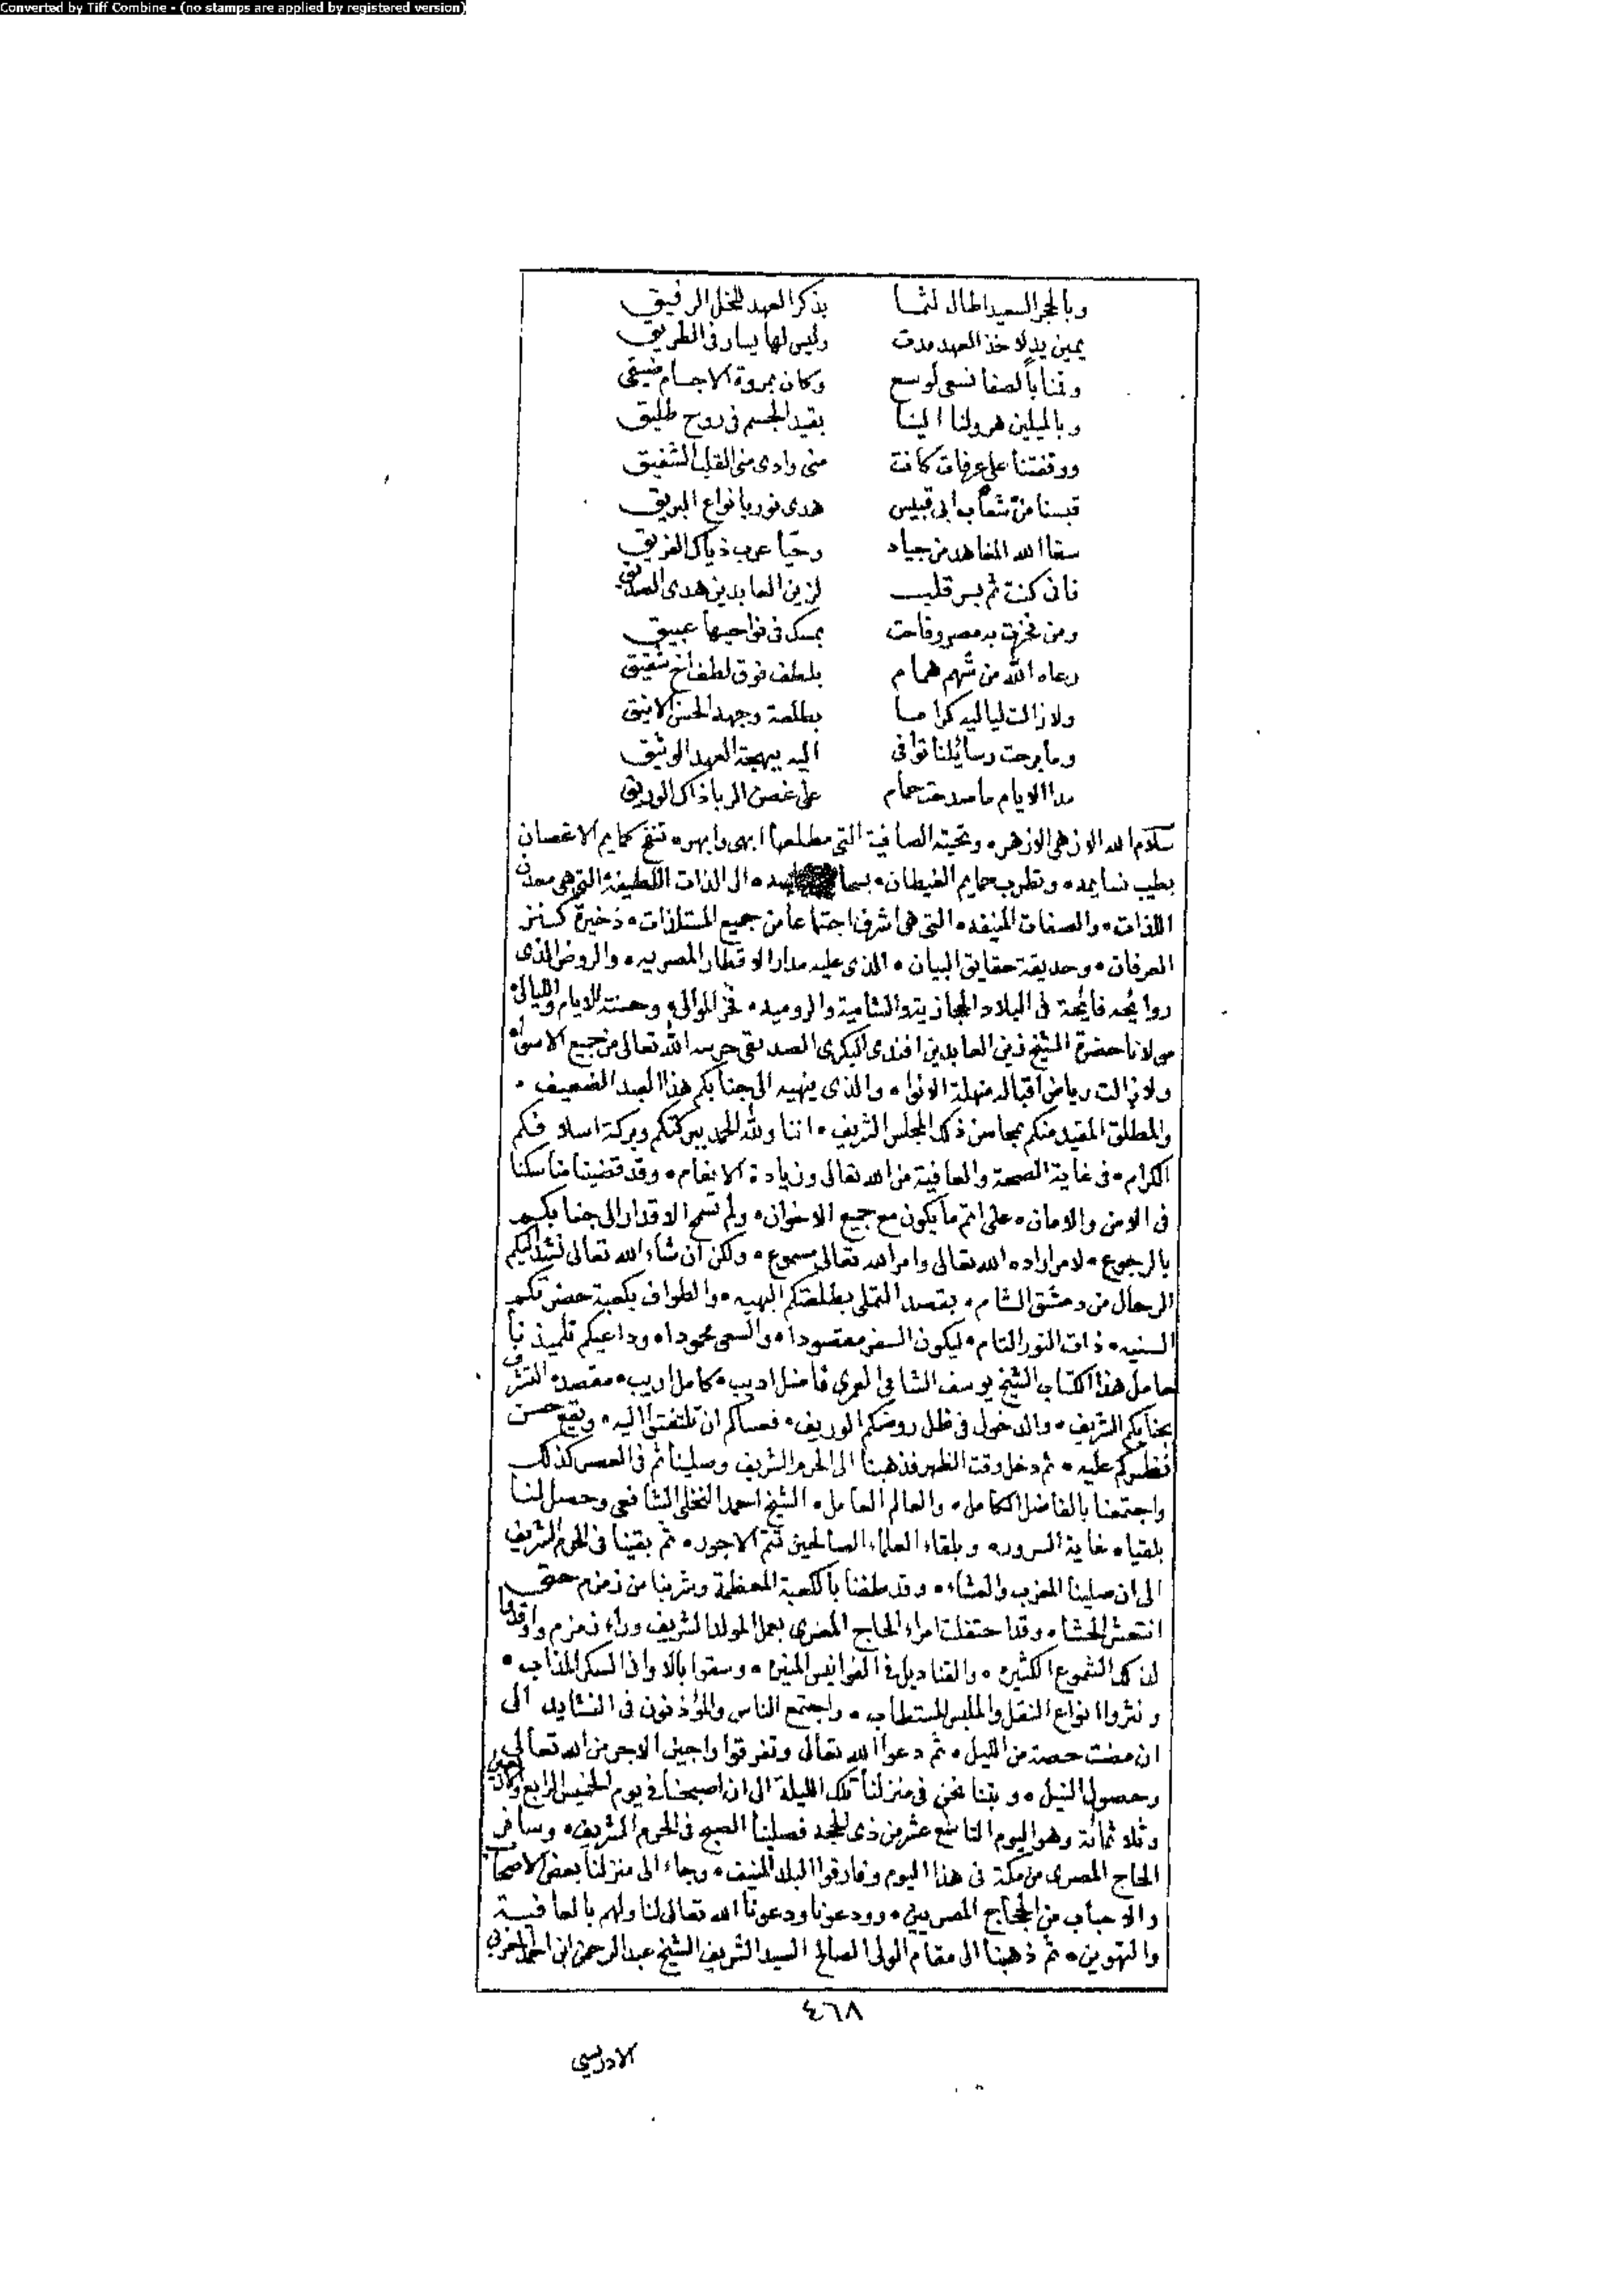 Converted by Tiff Combine - (no stamps are applied by registered version)
وبالحجر السعيد اطال لثما بذكر العهد للخل الرفيق
يمين يد لاخذ العهد مدت وليس لها يسار فى الطريق
وقمنا بالصفا نسعى لوسع وكان بمروة الاجسام ضيقى
وبالميلين هرولنا الينا بقيد الجسم فى روح طليق
ووقفتنا على عرفات كانت منى وادى منى القلب الشفيق
قبسنا من شعاب ابى قبيس هدى نور بانواع البريق
سقا الله المعاهد من جياد وحيا عرب ذياك الفريق
فانى كنت ثم بسر قلب لزين العابدين هدى الصديق
ومن فخرت به مصر وفاحت بمسك فى نواحيها عبيق
رعاه الله من شهم همام بلطف فوق لطف اخ شقيق
ولا زالت لياليه كراما بطلعة وجهه الحسن الانيق
وما برحت رسائلنا توافى اليه ببهجة العهد الوثيق
مدا الايام ما صدحت حمام على غصن الربا ذاك الوريق
سلام الله الازهى الازهر، وتحيته الصافية التى مطلعها ابهى وابهر، تنفح كمايم الاغصان
بطيب نسايمه، وتطرب حمايم الغيطان، الى الذات اللطيفة التى هى معدن
اللذات، والصفات المنيفه، التى هى اشرف اجتماعا من جميع المستلذات، ذخيرة كنز
العرفان، وحديقة حقايق البيان، الذى عليه مدار الاقطار المصريه، والروض الذى
روايحه فايحة فى البلاد الحجازية والشامية والروميه، فخر الموالى، وحسنة الايام والليالى،
مولانا حضرة الشيخ زين العابدين افندى البكرى الصديقى حرسه الله تعالى من جميع الاسواء
ولا زالت رياض اقباله منهلة الانوا، والذى ينهيه الى جنابكم هذا العبد الضعيف،
والمطلق المقيد منكم بمحاسن ذلك المجلس الشريف، اننا ولله الحمد ببركتكم وبركة اسلافكم
الكرام، فى غاية الصحة والعافية من الله تعالى وزيادة الانعام، وقد قضينا مناسكنا
فى الامن والامان، على اتم ما يكون مع جميع الاخوان، ولم تسمح الاقدار الى جنابكم
بالرجوع، لامر اراده الله تعالى وامر الله تعالى مسموع، ولكن ان شاء الله تعالى نشد اليكم
الرحال من دمشق الشام، بقصد التملى بطلعتكم البهيه، والطواف بكعبة حضرتكم
السنيه، ذات النور التام، ليكون السفر مقصودا، والسعى محمودا، وداعيكم تلميذنا
حامل هذا الكتاب الشيخ يوسف الشافى فاضل اديب، كامل اريب، مقصده التشرف
بجنابكم الشريف، والدخول فى ظل روضكم الوريف، فعساكم ان تلتفتوا اليه، ويقع حسن
نظركم عليه، ثم دخل وقت الظهر فذهبنا الى الحرم الشريف وصلينا ثم فى العصر كذلك
واجتمعنا بالفاضل الكامل، والعالم العامل، الشيخ احمد النخلى الشافعى وحصل لنا
بلقياه غاية السرور، وبلقاء العلماء الصالحين تتم الاجور، ثم بقينا فى الحرم الشريف
الى ان صلينا المغرب والعشاء، وقد طفنا بالكعبة المعظمة وشربنا من زمزم حتى
انتعش الحشا، وقد احتفلت امراء الحاج المصرى بعمل المولد الشريف وراء زمزم واوقدوا
لذلك الشموع الكثيره، والقناديل فى الفوانيس المنيره، وسقوا بالاوانى السكر المذاب،
ونثروا انواع النقل والملبس المستطاب، واجتمع الناس والمؤذنون فى النشايد الى
ان مضت حصة من الليل، ثم دعوا الله تعالى وتفرقوا راجين الاجر من الله تعالى
وحصول النيل، وبتنا نحن فى منزلنا تلك الليلة الى ان اصبحنا فى يوم الخميس الرابع والثمانين
وثلاثمائة وهو اليوم التاسع عشر من ذى الحجه فصلينا الصبح فى الحرم الشريف، وسافر
الحاج المصرى من مكة فى هذا اليوم وفارقوا البلد المنيف، وجاء الى منزلنا بعض الاصحاب
والاحباب من الحجاج المصريين، وودعونا ودعونا الله تعالى لنا ولهم بالعافية
والتهوين، ثم ذهبنا الى مقام الولى الصالح السيد الشريف الشيخ عبد الرحمن ابن احمد المغربى
٤٦٨
الادريسى